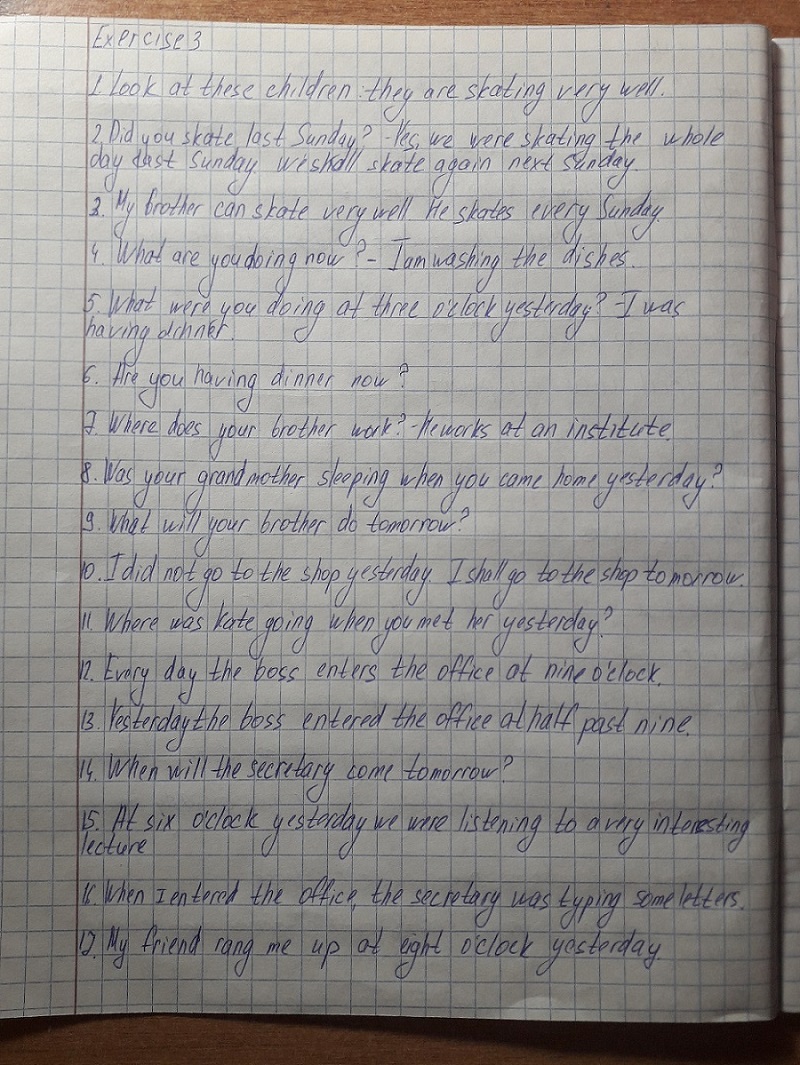 Exercise 3
1. Look at these children: they are skating very well.
2. Did you skate last Sunday? - Yes, we were skating the whole
day last Sunday. We shall skate again next Sunday.
3. My brother can skate very well He skates every Sunday.
4. What are you doing now? - I am washing the dishes.
5. What were you doing at three o'clock yesterday? - I was
having dinner.
6. Are you having dinner now?
7. Where does your brother work? - He works at an institute.
8. Was your grandmother sleeping when you came home yesterday?
9. What will your brother do tomorrow?
10. I did not go to the shop yesterday. I shall go to the shop tomorrow.
11. Where was Kate going when you met her yesterday?
12. Every day the boss enters the office at nine o'clock.
13. Yesterday the boss entered the office at half past nine.
14. When will the secretary come tomorrow?
15. At six o'clock yesterday we were listening to a very interesting
lecture
16. When I entered the office, the secretary was typing some letters.
17. My friend rang me up at eight o'clock yesterday.